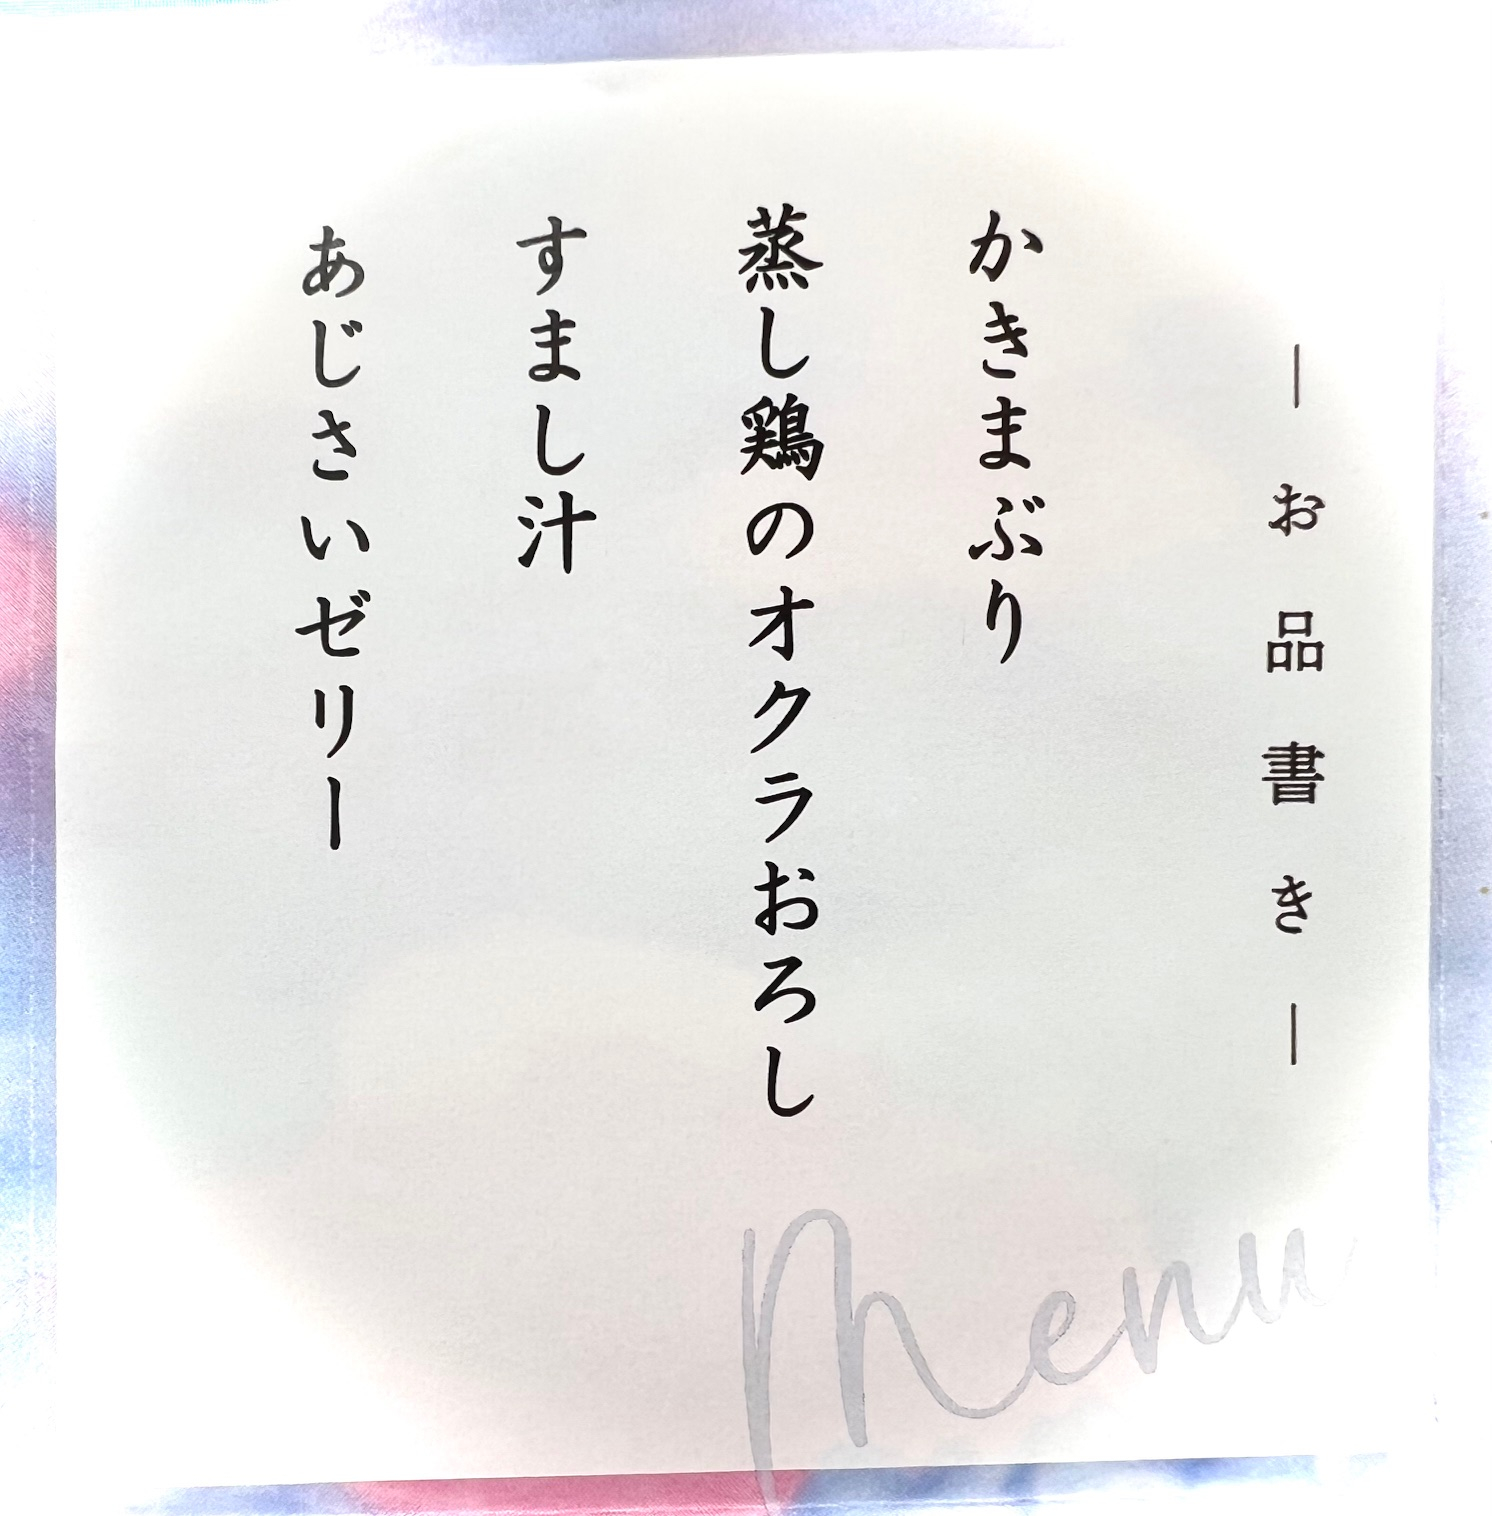 ―お品書き―
かきまぶり
蒸し鶏のオクラおろし
すまし汁
あじさいゼリー
Menu